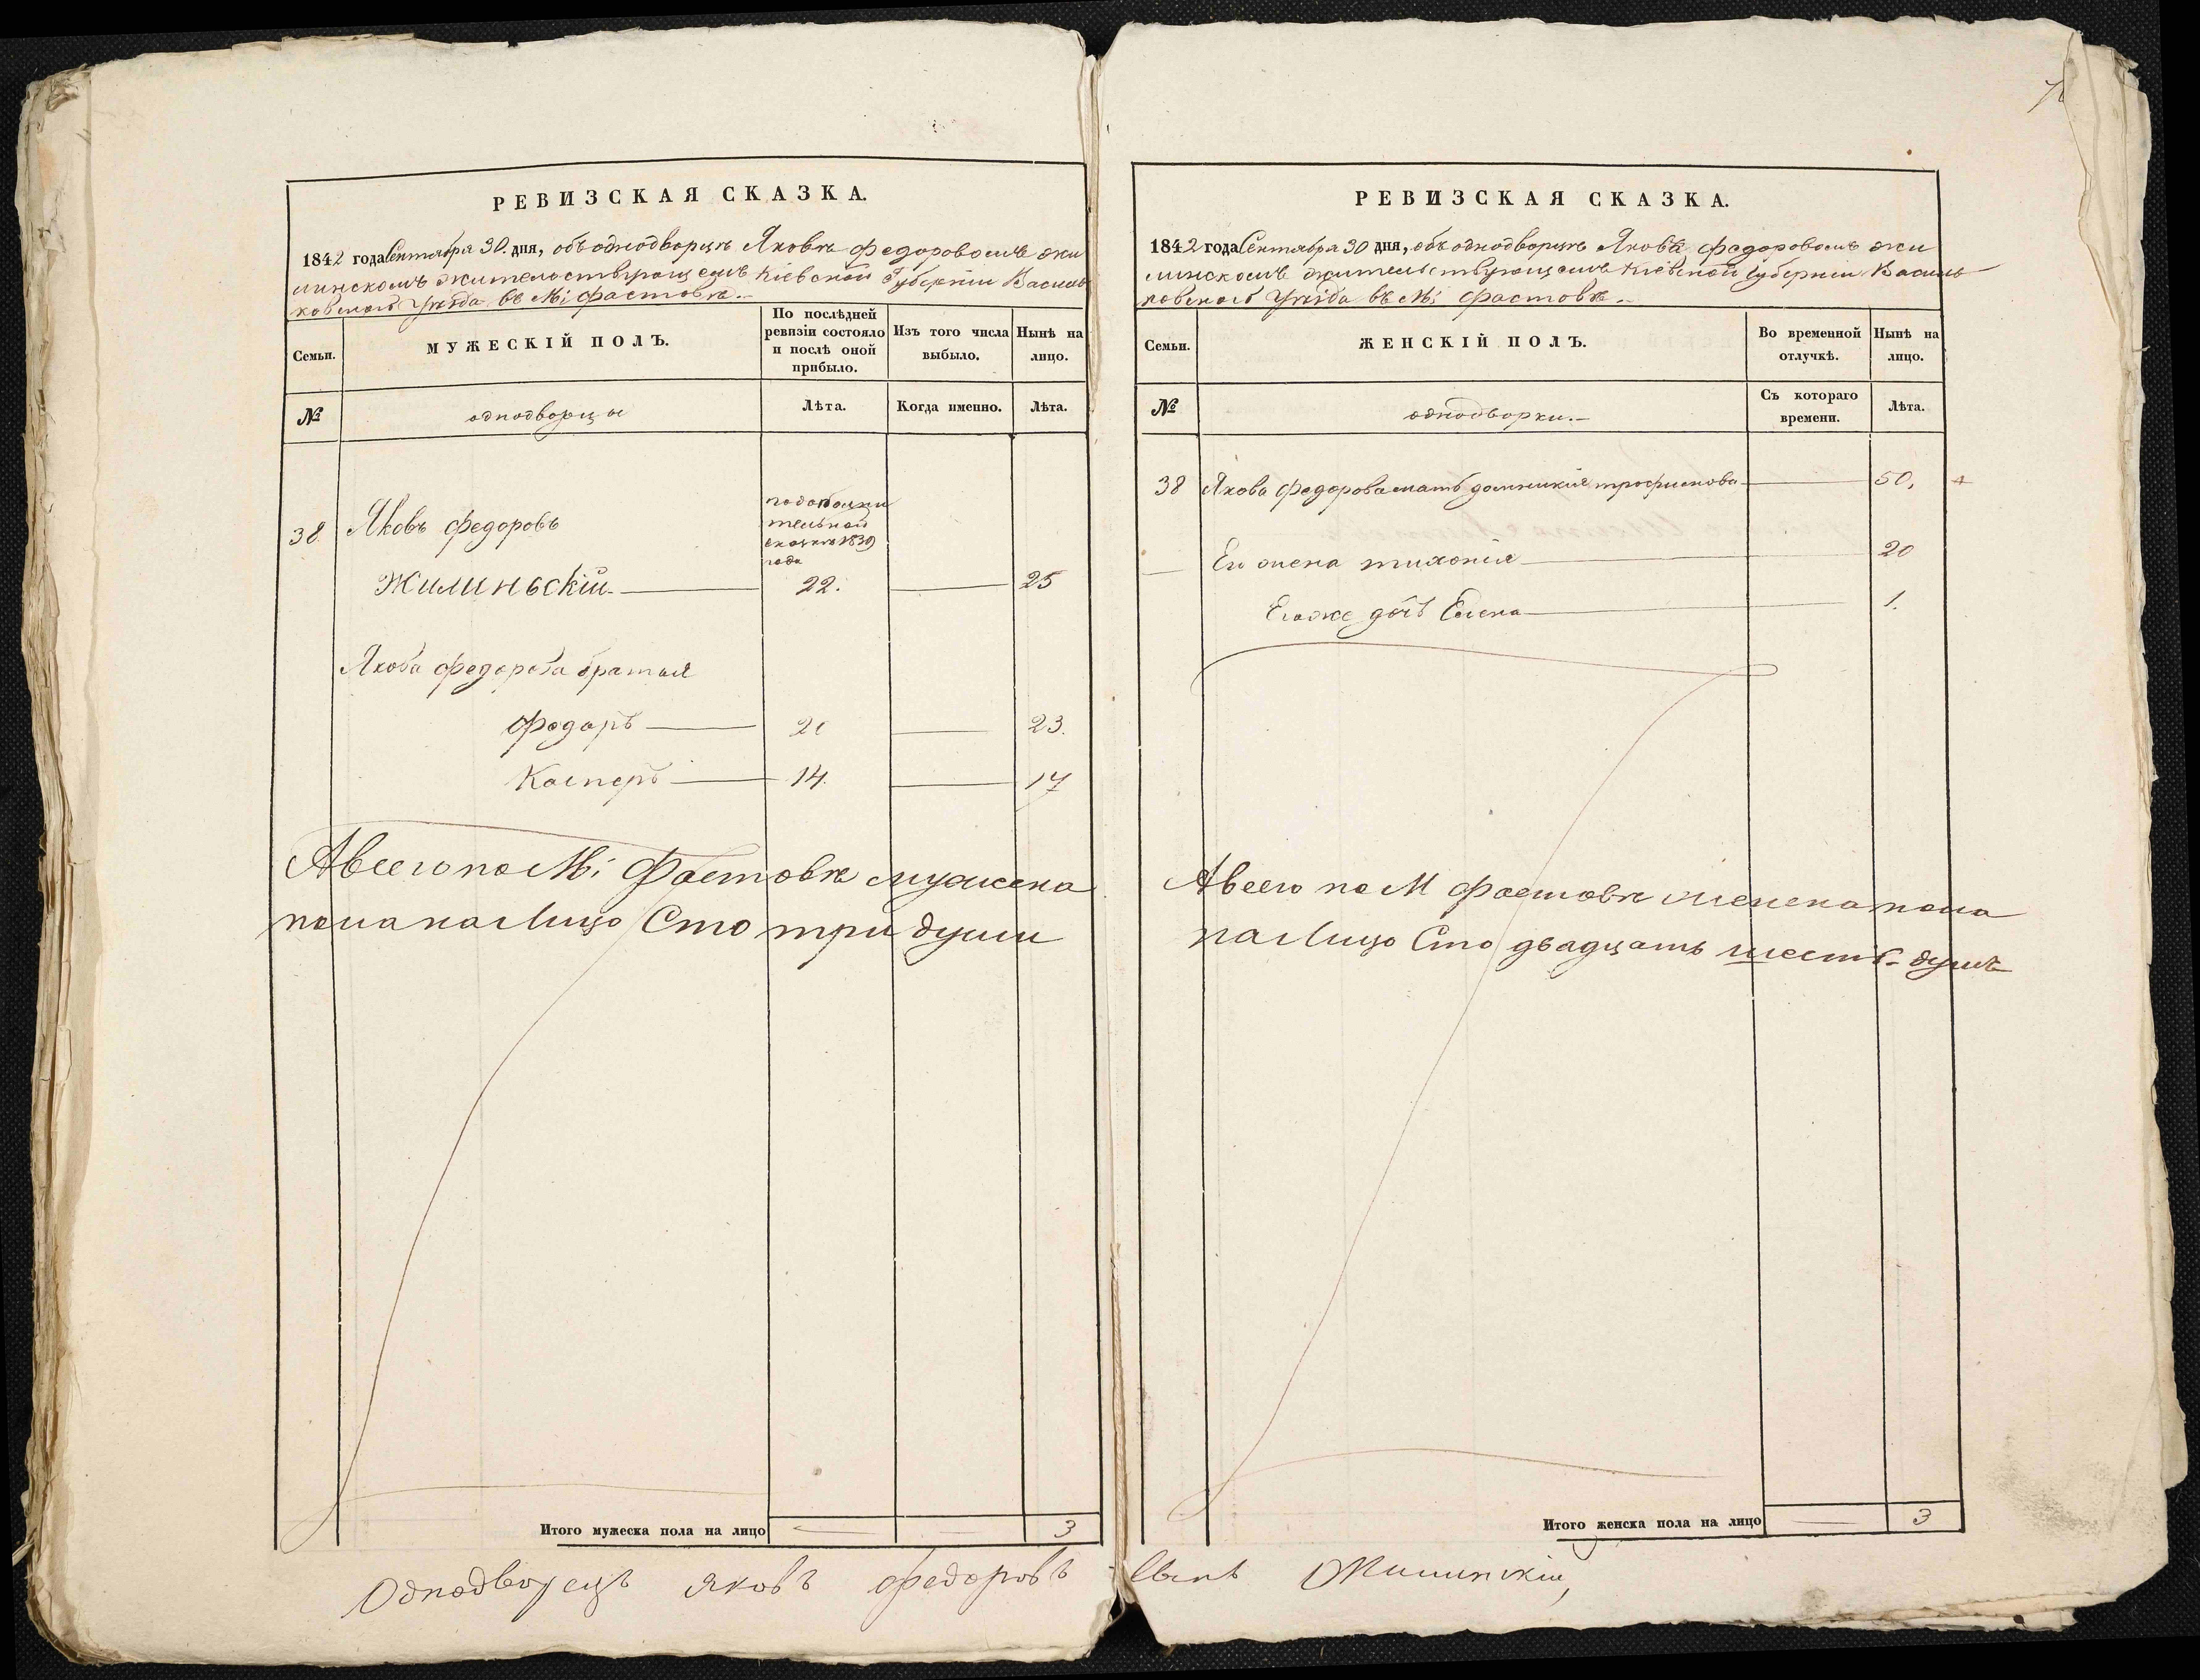 РЕВИЗСКАЯ СКАЗКА.
1842 года Сентября 30. дня, объ однодворцѣ Яковѣ Федоровомъ Жи
линскомъ жительствующемъ Кіевской Губерніи Василь
ковского Уѣзда въ М: Фастовѣ.
Семьи.
МУЖЕСКІЙ ПОЛЪ.
По послѣдней ревизіи состояло и послѣ оной прибыло.
Изъ того числа выбыло.
Нынѣ на лицо.
№
однодворцы
Лѣта.
Когда именно.
Лѣта.
38. Яковъ Федоровъ
сказкѣ 1839
года
Жилиньскій. 22. 25
Якова Федорова братья
Федоръ 20 23.
Касперъ 14. 17
А всего по М: Фастовѣ мужеска
пола на Лицо Сто три души
Итого мужеска пола на лицо 3
Однодворецъ Яковъ Федоровъ
РЕВИЗСКАЯ СКАЗКА.
1842 года Сентября 30 дня, объ однодворцѣ Яковѣ Федоровомъ Жи
линскомъ жительствующемъ Кіевской Губерніи Василь
ковского Уѣзда въ М: Фастовѣ.
Семьи.
ЖЕНСКІЙ ПОЛЪ.
Во временной отлучкѣ.
Нынѣ на лицо.
№
однодворки.
Съ котораго времени.
Лѣта.
38 Якова Федорова мать Трофимова 50,
Его жена 20
Его же дочь Елена 1.
А всего по М Фастовѣ женска пола
на Лицо Сто двадцать шесть душъ
Итого женска пола на лицо 3
сынъ Жилинскій,